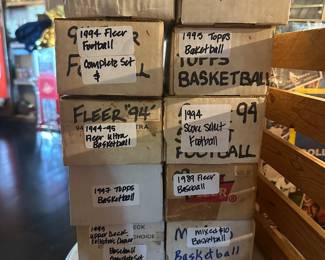 1994 Fleer
Football
Complete Set
1995 Topps
Basketball
TOPPS
BASKETBALL
FLEER "94"
1994-95
Fleer Ultra
Basketball
94
1994
Score Select
Football
1997 Topps
Basketball
1989 Fleer
Baseball
1995
Upper Deck
Collectors Choice
Baseball
Complete Set
CHOICE
Mixed
Basketball
Basketball